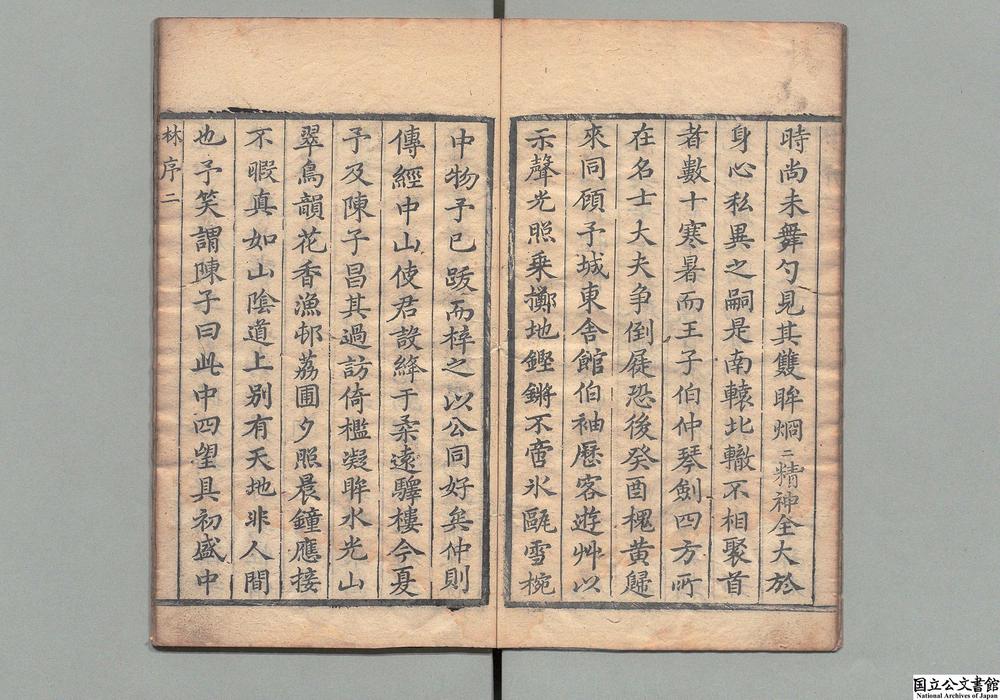 時尚未舞勺見其雙眸烱〻精神全大於
身心私異之嗣是南轅北轍不相聚首
者數十寒暑而王子伯仲琴劍四方所
在名士大夫争倒屣恐後癸酉槐黄歸
來同顧予城東舍館伯袖歷客遊艸以
示聲光照乗擲地鏗鏘不啻氷甌雪椀
中物予已跋而梓之以公同好矣仲則
傳經中山使君設絳于桑遠驛樓今夏
予及陳子昌其過訪倚檻凝眸水光山
翠鳥韻花香漁邨荔圃夕照晨鐘應接
不暇真如山陰道上別有天地非人間
也予笑謂陳子曰此中四望具初盛中
林序二
国立公文書館
National Archives of Japan